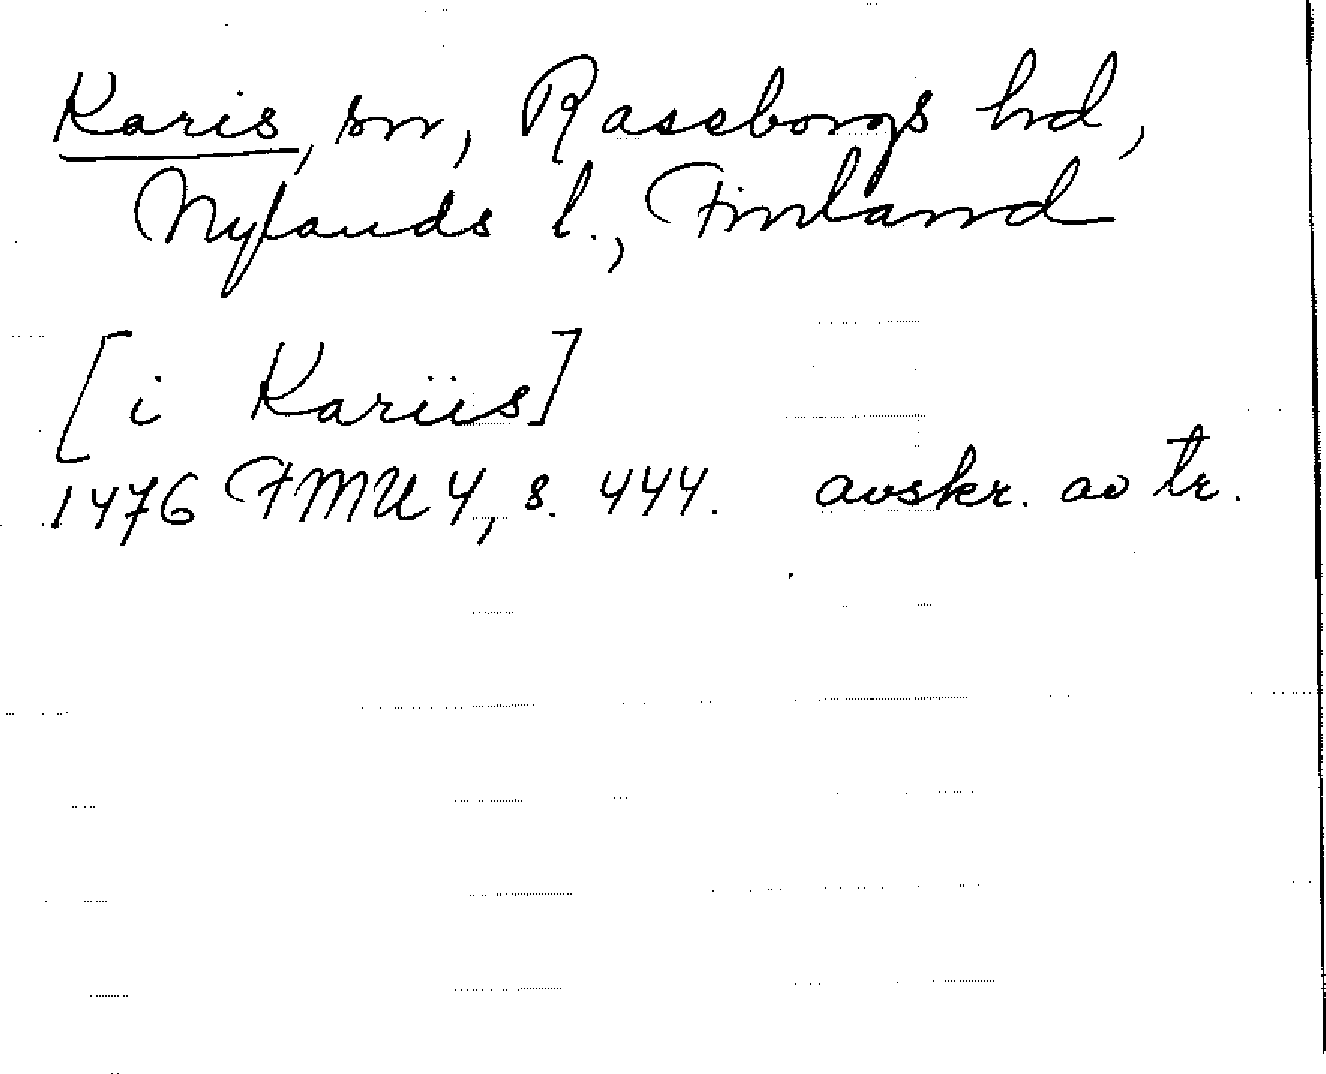 Karis, sn, Raseborgs hd,
Nylands l., Finland
[i Kariis]
1476 FMU 4, s. 444. avskr. av tr.